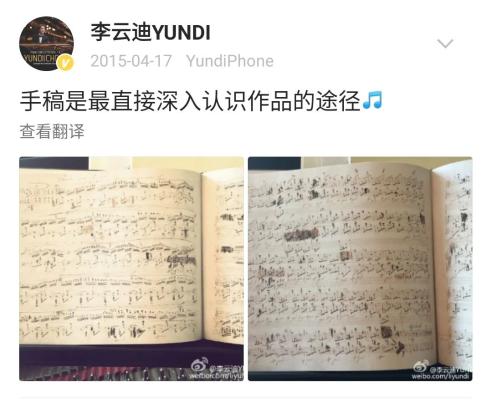 李云迪YUNDI
2015-04-17 YundiPhone
手稿是最直接深入认识作品的途径
查看翻译
YUNDI|CHO
@李云迪YUNDI
weibo.com/liyundi
@李云迪YUNDI
weibo.com/liyundi